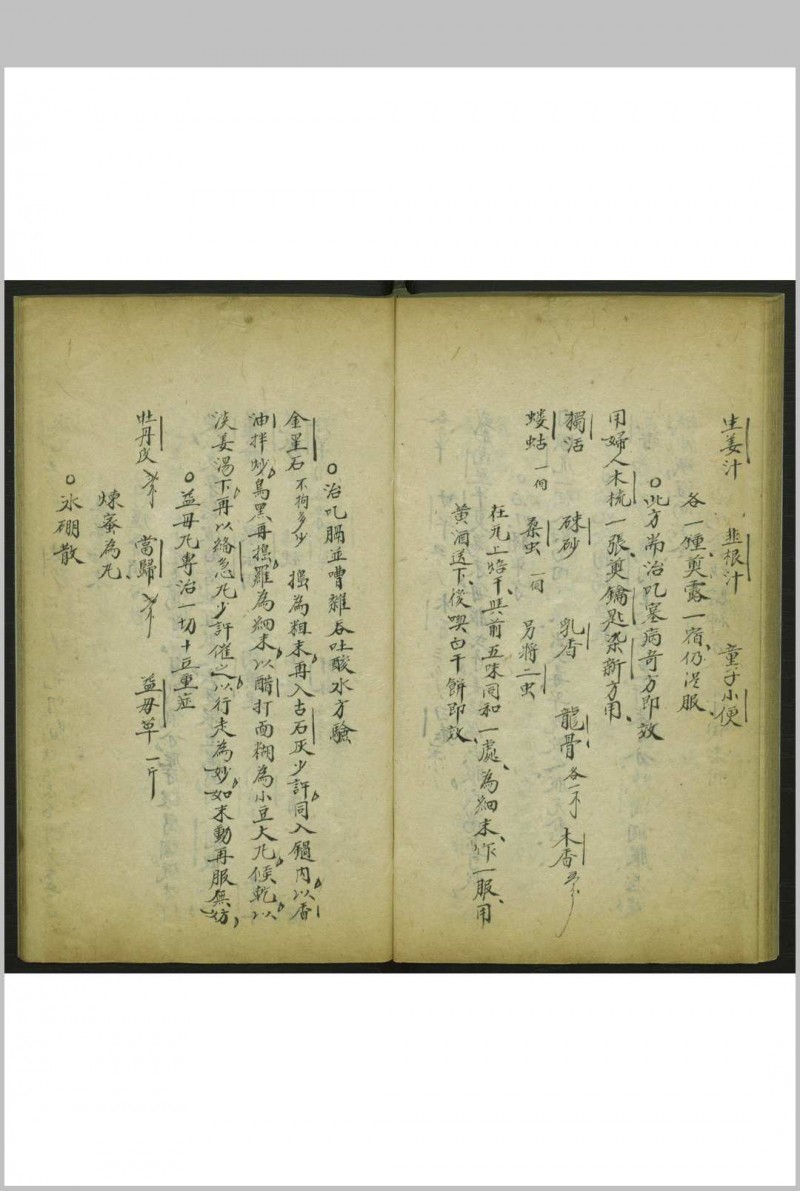 生姜汁 韭根汁 童子小便
各一鍾煎露一宿仍温服
此方耑治吃塞病奇方即效
用婦人木梳一張煎鑰匙染新方用
獨活 硃砂 乳香 龍骨 各一 木香
螻蛄 一個 桑虫 一個 另將二虫
在瓦上焙干與前五味同和一處為細末作一服用
黄酒送下後喫白干餅即效
治吃膈並嘈雜吞吐酸水方驗
金星石 不拘多少 搗為粗末再入古石灰少許同入鍋内以香
油拌炒烏黑再搗羅為細末以醋打面糊為小豆大丸候乾以
淡姜湯下再以備急丸少許催之以行走為妙如未動再服無妨
益母丸專治一切十五重症
牡丹皮 當歸 益母草 一斤
煉蜜為丸
氷硼散